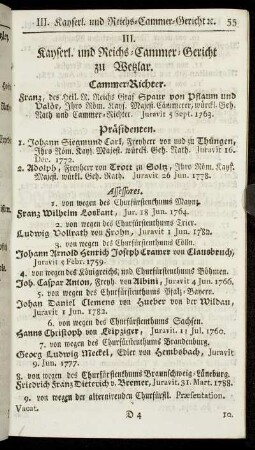 III. Kayserl. und Reichs-Cammer-Gericht ꝛc. 55
III.
Kayserl. und Reichs-Cammer-Gericht
zu Wetzlar.
CammerRichter.
Franz, des Heil. R. Reichs Graf Spaur von Pflaum und
Valör, Ihro Röm. Kays. Majest. Cämmerer, würkl. Geh.
Rath und Cammer-Richter. Juravit 5 Sept. 1763.
Präsidenten.
1. Johann Siegmund Carl, Freyherr von und zu Thüngen,
Ihro Röm. Kays. Majest. würkl. Geh. Rath. Juravit 16.
Dec. 1772.
2. Adolph, Freyherr von Trott zu Soltz, Ihro Röm. Kays.
Majest. würkl. Geh. Rath. Juravit 26 Jun. 1778.
Assessores.
1. von wegen des Churfürstenthums Maynz.
Franz Wilhelm Loskant, Jur. 18 Jun. 1764.
2. von wegen des Churfürstenthums Trier.
Ludwig Vollrath von Frohn, Juravit 1 Jun. 1782.
3. von wegen des Churfürstenthums Cölln.
Johann Arnold Henrich Joseph Cramer von Clausbruch,
Juravit 5 Febr. 1759.
4. von wegen des Königreichs, und Churfürstenthums Böhmen.
Joh. Caspar Anton, Freyh. von Albini, Juravit 4 Jun. 1766.
5. von wegen des Churfürstenthums Pfalz-Bayern.
Johann Daniel Clemens von Hueber von der Wildau,
Juravit 1 Jun. 1782.
6. von wegen des Churfürstenthums Sachsen.
Hanns Christoph von Leipziger, Juravit. 11 Jul. 1760.
7. von wegen des Churfürstenthums Brandenburg.
Georg Ludwig Meckel, Edler von Hembobach, Juravit
9. Jun. 1777.
8. von wegen des Churfürstenthums Braunschweig-Lüneburg.
Friedrich Franz Dieterich v. Bremer, Juravit. 31. Mart. 1788.
9. von wegen der alternirenden Churfürstl. Præsentation.
Vacat.
D 4 10.